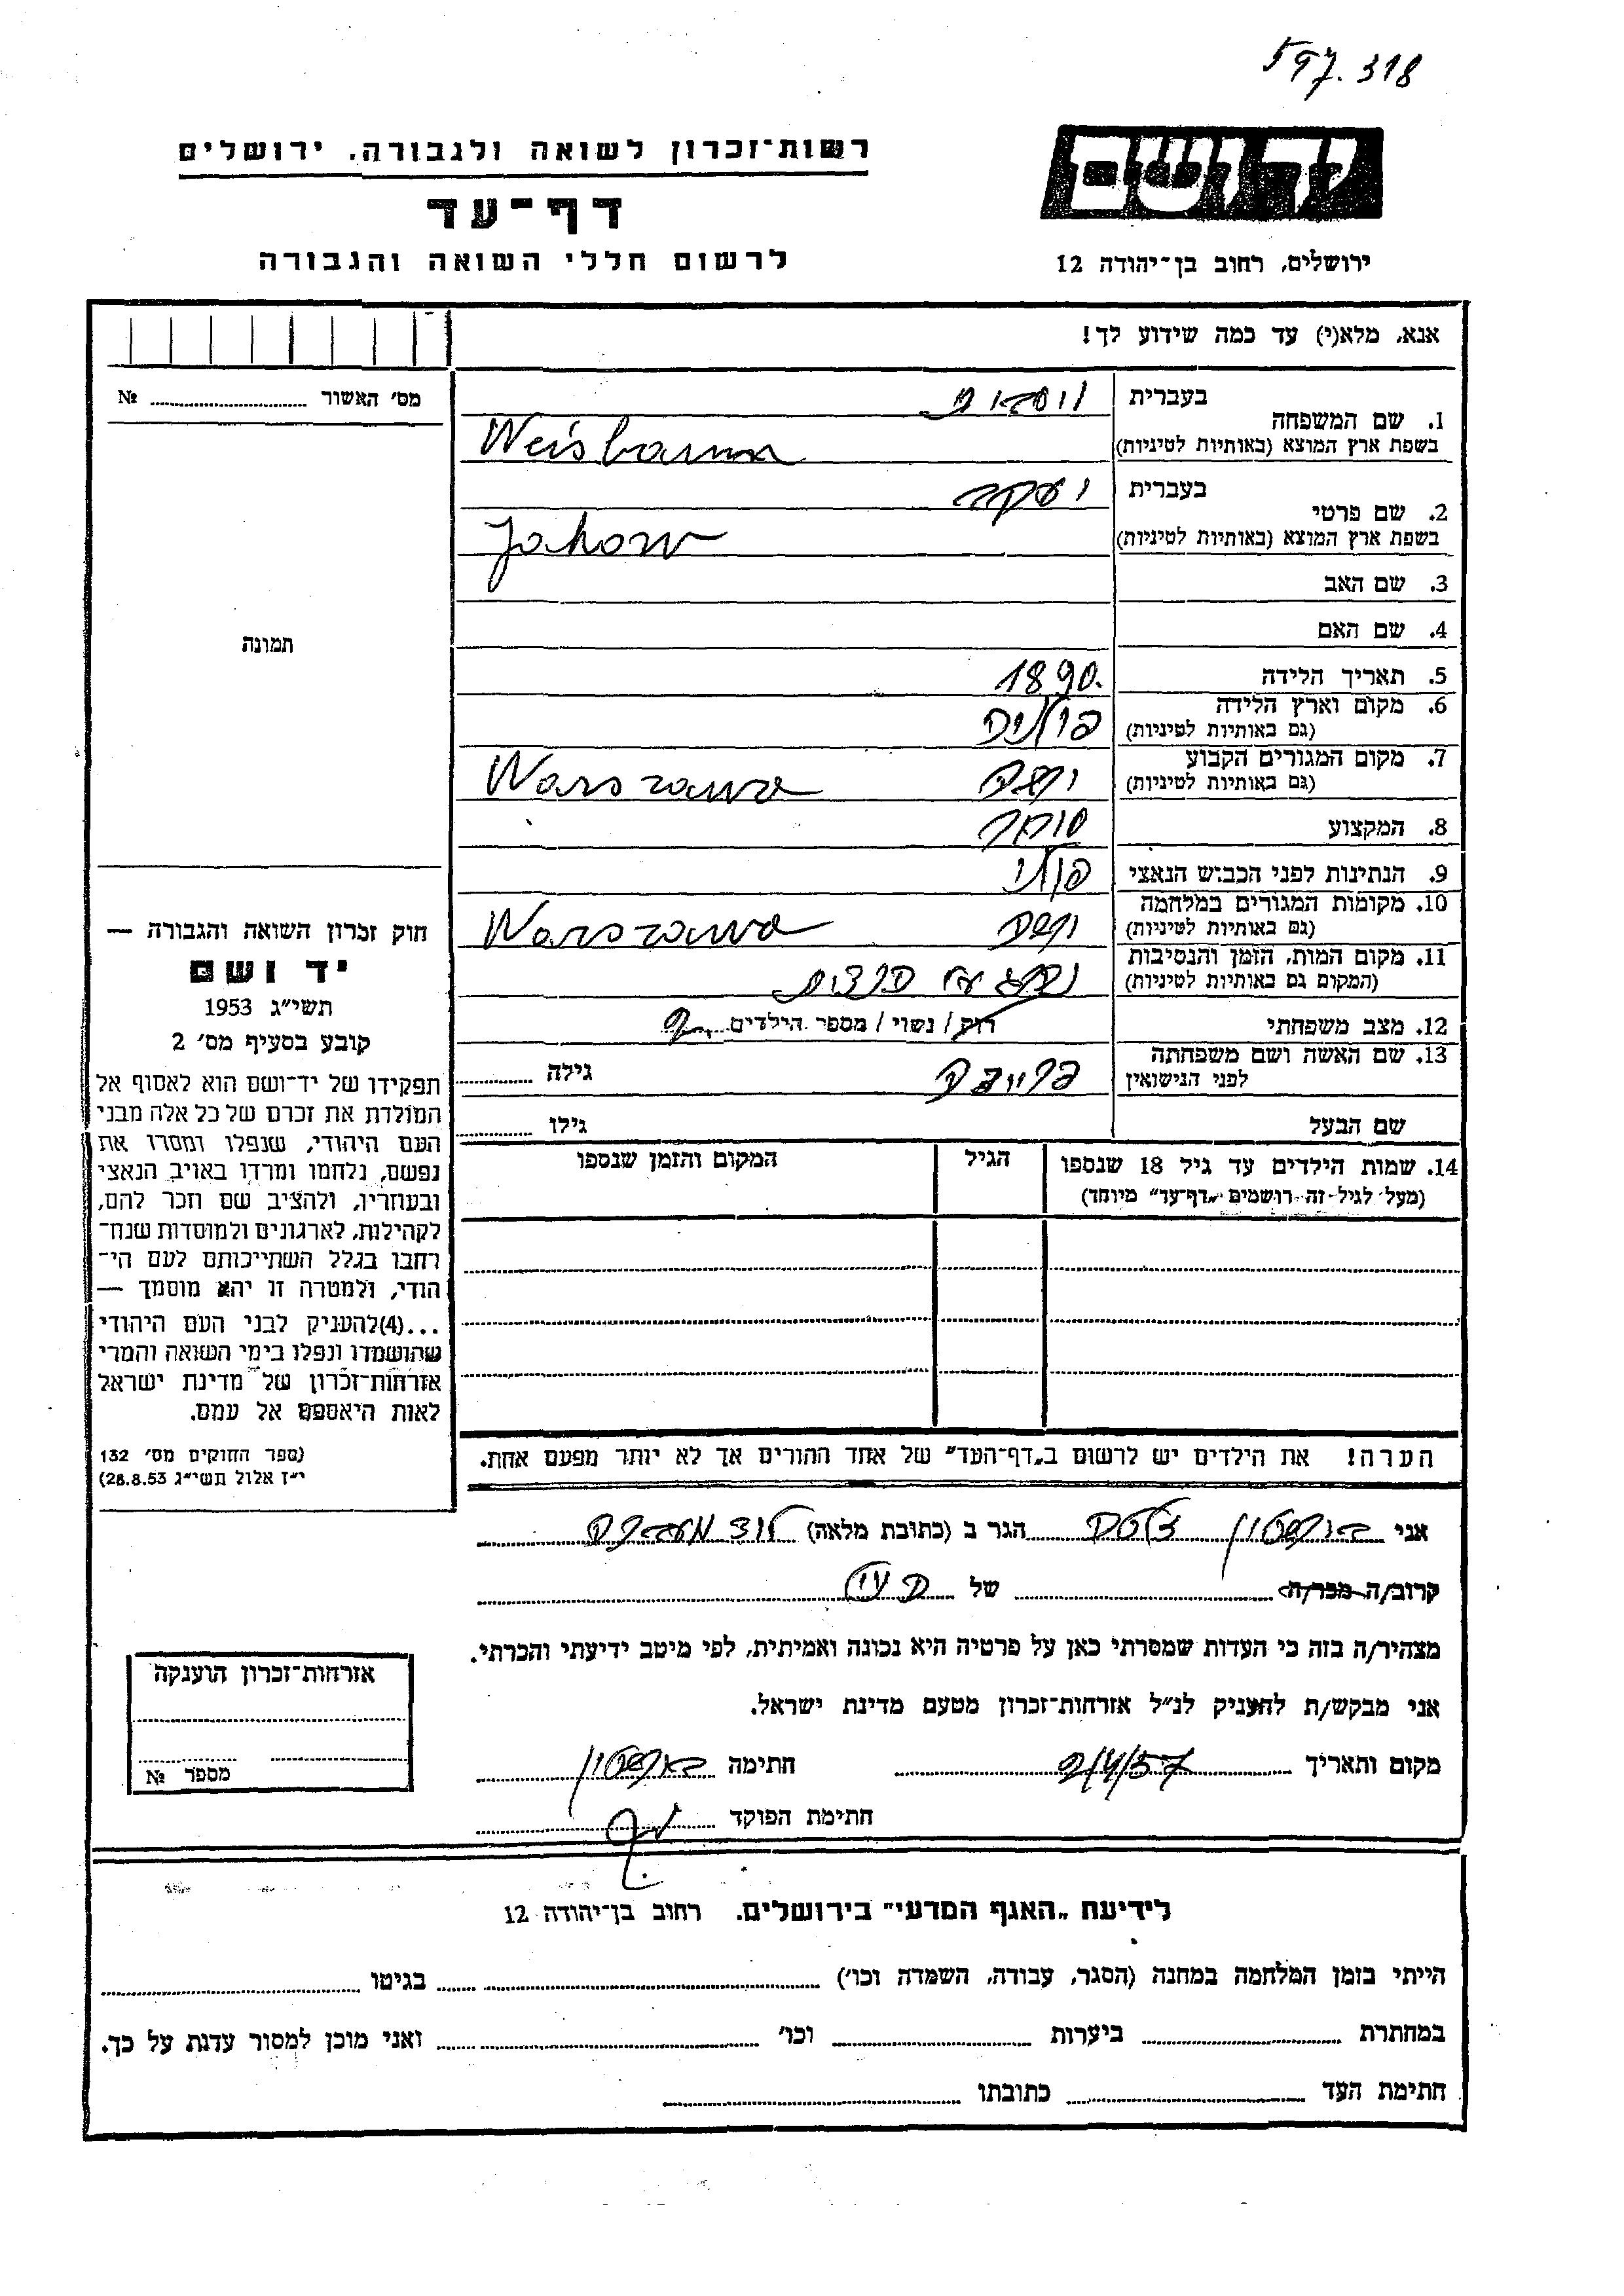 597.318
יד ושם
רשות־זכרון לשואה ולגבורה, ירושלים
דף־עד
לרשום חללי השואה והגבורה
ירושלים, רחוב בן־יהודה 12
אנא, מלא(י) עד כמה שידוע לך!
מס' האשור № 
תמונה
חוק זכרון השואה והגבורה —
יד ושם
תשי״ג 1953
קובע בסעיף מס' 2
תפקידו של יד־ושם הוא לאסוף אל
המולדת את זכרם של כל אלה מבני
העם היהודי, שנפלו ומסרו את
נפשם, נלחמו ומרדו באויב הנאצי
ובעוזריו, ולהציב שם וזכר להם,
לקהילות, לארגונים ולמוסדות שנח־
רחבו בגלל השתייכותם לעם הי־
הודי, ולמטרה זו יהא מוסמך —
...(4) להעניק לבני העם היהודי
שהושמדו ונפלו בימי השואה והמרי
אזרחות־זכרון של מדינת ישראל
לאות היאספם אל עמם.
(ספר החוקים מס' 132
י״ז אלול תשי״ג 28.8.53)
1. שם המשפחה
בעברית
בשפת ארץ המוצא (באותיות לטיניות) Weisbaum
2. שם פרטי
בעברית יעקב
בשפת ארץ המוצא (באותיות לטיניות) Jakow
3. שם האב
4. שם האם
5. תאריך הלידה 1890.
6. מקום וארץ הלידה
(גם באותיות לטיניות) פולניה
7. מקום המגורים הקבוע
(גם באותיות לטיניות) ורשה Warszawa
8. המקצוע סוחר
9. הנתינות לפני הכבוש הנאצי פולני
10. מקומות המגורים במלחמה
(גם באותיות לטיניות) ורשה Warszawa
11. מקום המות, הזמן והנסיבות
(המקום גם באותיות לטיניות)
12. מצב משפחתי רוק / נשוי / מספר הילדים
13. שם האשה ושם משפחתה
לפני הנישואין גילה
שם הבעל גילו
14. שמות הילדים עד גיל 18 שנספו
(מעל לגיל זה רושמים „דף־עד״ מיוחד)
הגיל
המקום והזמן שנספו
הערה! את הילדים יש לרשום ב„דף־העד״ של אחד ההורים אך לא יותר מפעם אחת.
אני הגר ב (כתובת מלאה)
קרוב/ה מכר/ה של
מצהיר/ה בזה כי העדות שמסרתי כאן על פרטיה היא נכונה ואמיתית, לפי מיטב ידיעתי והכרתי.
אני מבקש/ת להעניק לנ״ל אזרחות־זכרון מטעם מדינת ישראל.
מקום ותאריך 9/4/57 חתימה
חתימת הפוקד
אזרחות־זכרון הוענקה
מספר №
לידיעת „האגף המדעי״ בירושלים. רחוב בן־יהודה 12
הייתי בזמן המלחמה במחנה (הסגר, עבודה, השמדה וכו') בגיטו
במחתרת ביערות וכו' ואני מוכן למסור עדות על כך.
חתימת העד כתובתו